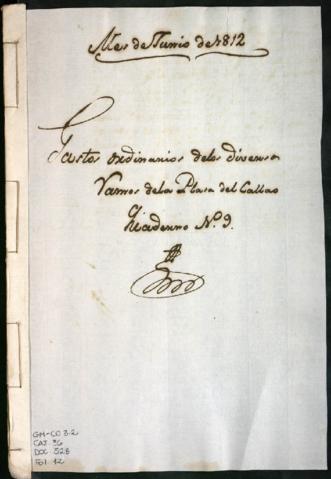 Mes de Junio de 1812
Gastos ordinarios delos diversos
Ramos dela Plasa del Callao
Quaderno N.º 9.
GM-CO 3.2
CAJ 36
DOC 528
Fol 12